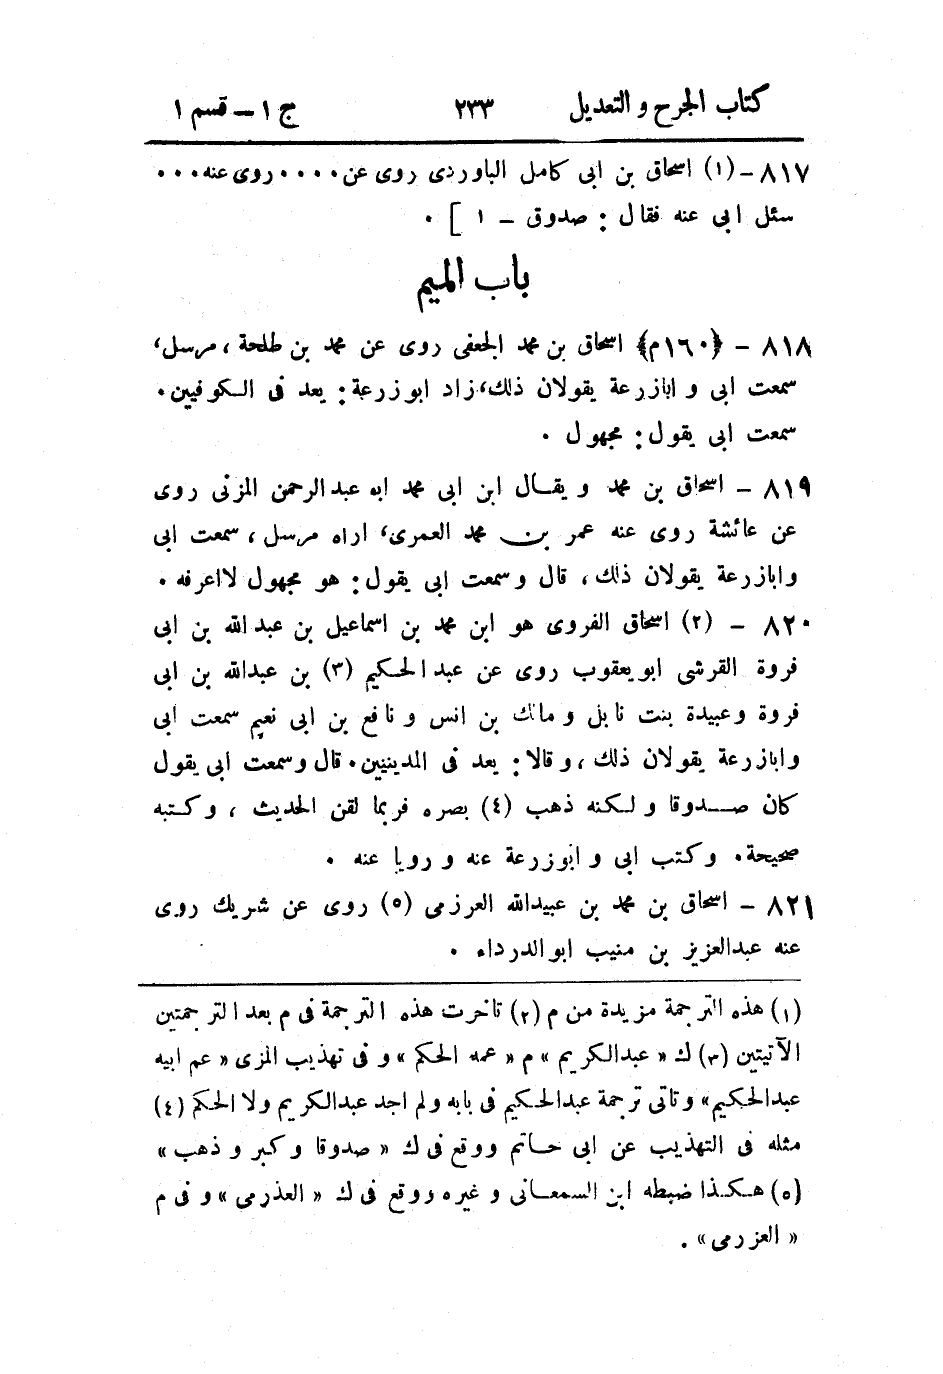 كتاب الجرح والتعديل ٢٣٣ ج ١ – قسم ١
٨١٧ – (١) اسحاق بن ابى كامل الباوردى روى عن ٠٠٠٠ روى عنه ٠٠٠
سئل ابى عنه فقال : صدوق – ١ ] ٠
باب الميم
٨١٨ – ﴿١٦٠م﴾ اسحاق بن محمد الجعفى روى عن محمد بن طلحة ، مرسل،
سمعت ابى و ابازرعة يقولان ذلك، زاد ابوزرعة : يعد فى الكوفيين ٠
سمعت ابى يقول : مجهول ٠
٨١٩ – اسحاق بن محمد و يقال ابن ابى محمد ابه عبدالرحمن المزنى روى
عن عائشة روى عنه عمر بن محمد العمرى، اراه مرسل ، سمعت ابى
وابازرعة يقولان ذلك ، قال وسمعت ابى يقول : هو مجهول لااعرفه ٠
٨٢٠ – (٢) اسحاق الفروى هو ابن محمد بن اسماعيل بن عبدالله بن ابى
فروة القرشى ابويعقوب روى عن عبدالحكيم (٣) بن عبدالله بن ابى
فروة وعبيدة بنت نابل ومالك بن انس ونافع بن ابى نعيم سمعت ابى
وابازرعة يقولان ذلك ، وقالا : يعد فى المدينيين ٠ قال وسمعت ابى يقول
كان صدوقا ولكنه ذهب (٤) بصره فربما لقن الحديث ، وكتبه
صحيحة ٠ وكتب ابى و ابوزرعة عنه و رويا عنه ٠
٨٢١ – اسحاق بن محمد بن عبيدالله العرزمى (٥) روى عن شريك روى
عنه عبدالعزيز بن منيب ابوالدرداء ٠
(١) هذه الترجمة مزيدة من م (٢) تاخرت هذه الترجمة فى م بعد الترجمتين
الآتيتين (٣) ك « عبدالكريم » م « عمه الحكم » و فى تهذيب المزى « عم ابيه
عبدالحكيم » وتاتى ترجمة عبدالحكيم فى بابه ولم اجد عبدالكريم ولا الحكم (٤)
مثله فى التهذيب عن ابى حاتم ووقع فى ك « صدوقا وكبر وذهب »
(٥) هكذا ضبطه ابن السمعانى وغيره ووقع فى ك « العذرمى » و فى م
« العزرمى » ٠